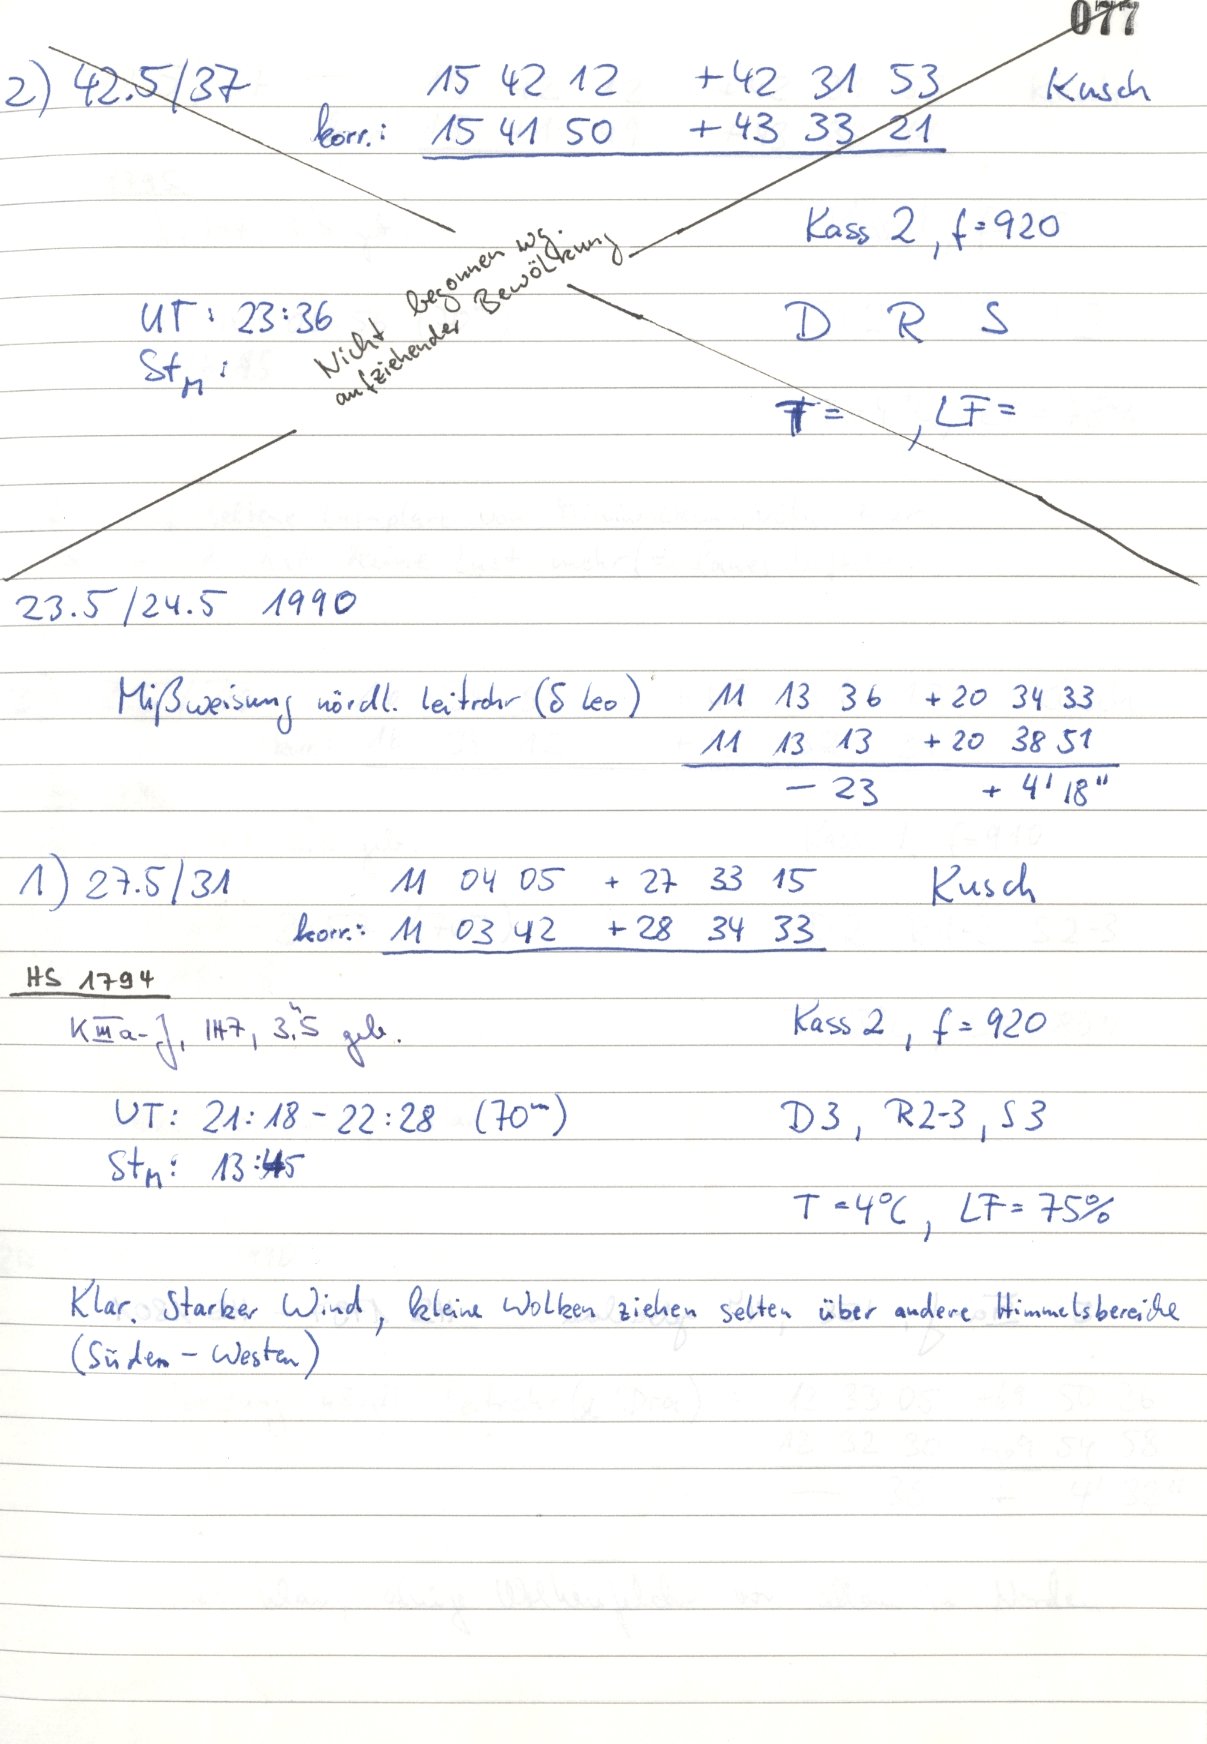 077
2) 42.5/37 15 42 12 +42 31 53 Kusch
korr.: 15 41 50 +43 33 21
Kass 2, f=920
Nicht begonnen wg.
aufziehender Bewölkung
UT: 23:36 D R S
St_M:
T= , LF=
23.5/24.5 1990
Mißweisung nördl. Leitrohr (δ Leo) 11 13 36 +20 34 33
11 13 13 +20 38 51
- 23 + 4' 18"
1) 27.5/31 11 04 05 + 27 33 15 Kusch
korr.: 11 03 42 +28 34 33
HS 1794
K III a-J, IH7, 3.5 geb. Kass 2, f=920
UT: 21:18 - 22:28 (70m) D3, R2-3, S3
St_M: 13:45
T=4°C, LF=75%
Klar. Starker Wind, kleine Wolken ziehen selten über andere Himmelsbereiche
(Süden - Westen)